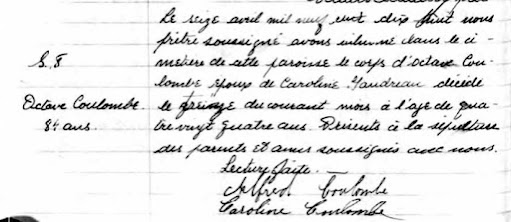 Le seize avril mil neuf cent dix huit nous
prêtre soussigné avons inhumé dans le ci-
S. 8
metière de cette paroisse le corps d'octave Cou-
lombe époux de Caroline Gaudreau décédé
Octave Coulombe.
le treize du courant mois à l'age de qua-
84 ans.
tre vingt quatre ans. Présents à la sépulture
des parents et amis soussignés avec nous.
Lecture faite.
Alfred Coulombe
Caroline Coulombe